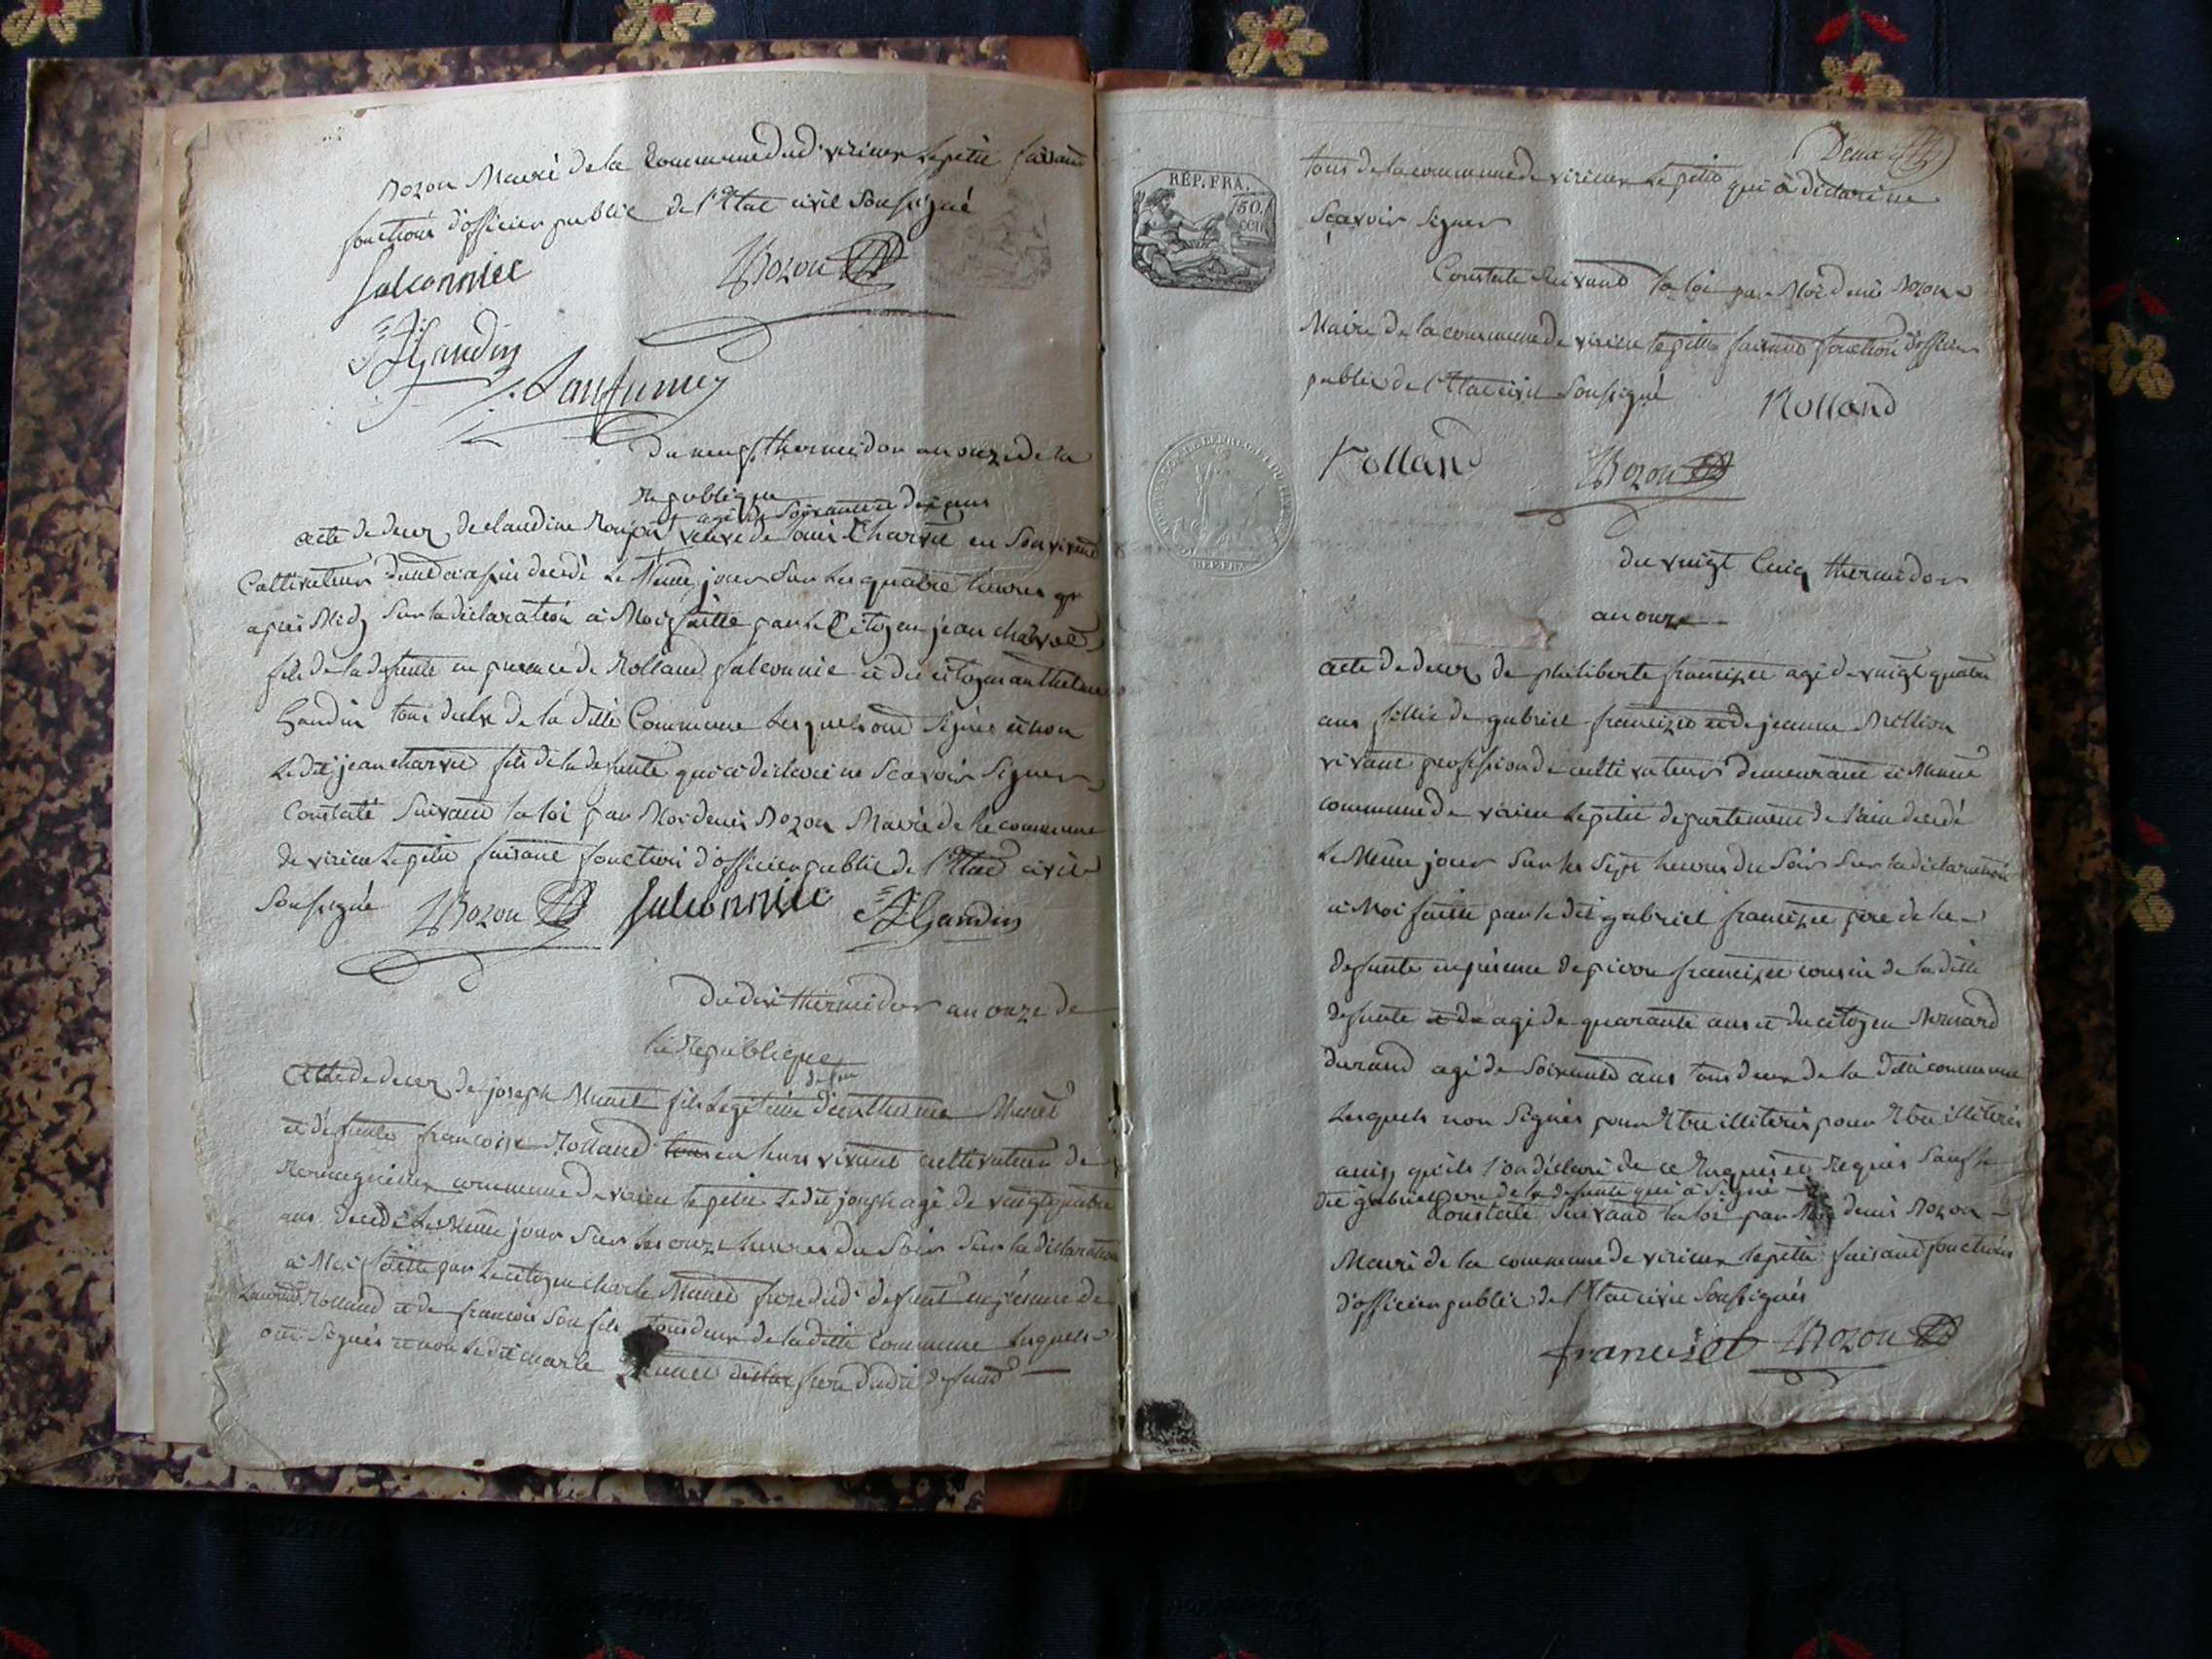 Bozon Maire de la Commune dud. virieux le petit faisant
fonctions d'officier public de l'Etat civil Soussigné
falconniee
Bozon
Gaudin
Lanfumey
Du neuf thermidor an onze de la
Republique
agé de Soixante dix ans
acte de deces de claudine veuve de Louis Charvet en Son vivant
Cultivateur decedé le Meme jour Sur les quatre heures
apres Midy Sur la declaration a Moi faitte par le Citoyen jean charvet
fils de la defunte en presence de Rolland falconnie et du citoyen anthelme
Gaudin tous deux de la ditte Commune lesquels ont Signés et non
le dit jean charvet fils de la defunte qui a declaré ne Scavoir Signer
Constaté Suivant la loi par Moi denis Bozon Maire de la commune
de virieu le petit faisant fonctions d'officier public de l'Etat civil
Soussigné Bozon falconniee Gaudin
Du dix thermidor an onze de
la Republique
defun
Acte de deces de joseph Munet fils legitime d'anthelme Munet
et defunte francoise Rolland tous en leurs vivant cultivateur de
commune de virieu le petit le dit joseph agé de vingt quatre
ans decedé le Meme jour Sur les onze heures du Soir Sur la declaration
a Moi faitte par le citoyen charle Munet frere dudi defunt en presence de
Rolland et de francois Son fils tous deux de la ditte Commune lesquels
ont Signés et non le dit charle Munet frere dudit defund
Deux
tous de la commune de virieux le petit qui a déclaré ne
Scavoir Signer
REP. FRA.
50.
CEN.
Constaté Suivant la loi par Moi denis Bozon
Maire de la commune de virieu le petit faisant fonction d'officier
public de l'Etat civil Soussigné
Rolland
Rolland
Bozon
du vingt Cinq thermidor
an onze
acte de deces de philiberte francizet agé de vingt quatre
ans fillie de gabriel francizet et de jeanne Million
vivant profession de cultivateurs demeurant a Munet
commune de virieu le petit departement de l'ain decedé
le Meme jour Sur les Sept heures du Soir Sur la declaration
a Moi faitte par le dit gabriel francizet pere de la
defunte en presence de francizet cousin de la ditte
defunte et de agé de quarante ans et du citoyen Bernard
durand agé de Soixante ans tous deux de la ditte commune
lesquels non Signés pour Etre illiterés pour Etre illiterés
ainsy qu'ils l'on déclaré de ce Enquis et Requis Sauf le
dit gabriel pere de la defunte qui a Signé
Constaté Suivant la loi par Moi denis Bozon
Maire de la commune de virieux le petit faisant fonctions
d'officier public de l'Etat civil Soussignés
francizet Bozon